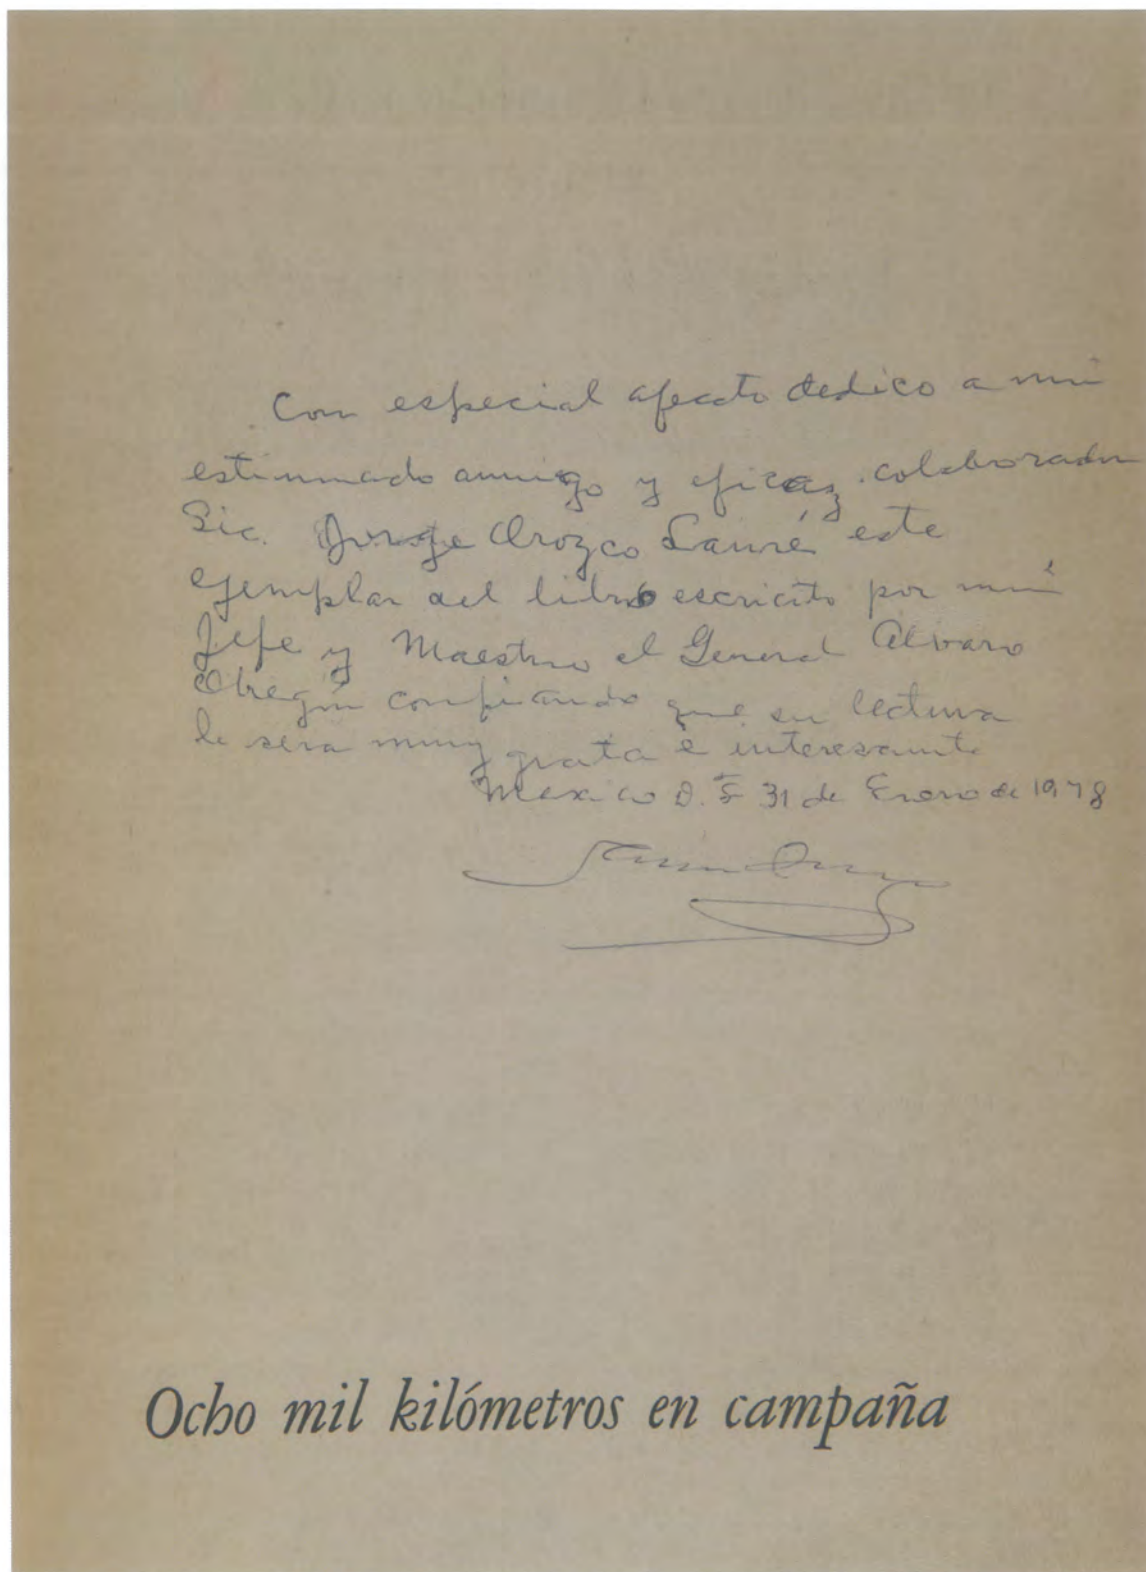 Con especial afecto dedico a mi
estimado amigo y eficaz colaborador
Lic. Jorge Orozco Lanré este
ejemplar del libro escricito por mi
Jefe y Maestro el General Alvaro
Obregón confiando que su lectura
le sera muy grata é interesante
Mexico D. F 31 de Enero de 1978
Ocho mil kilómetros en campaña